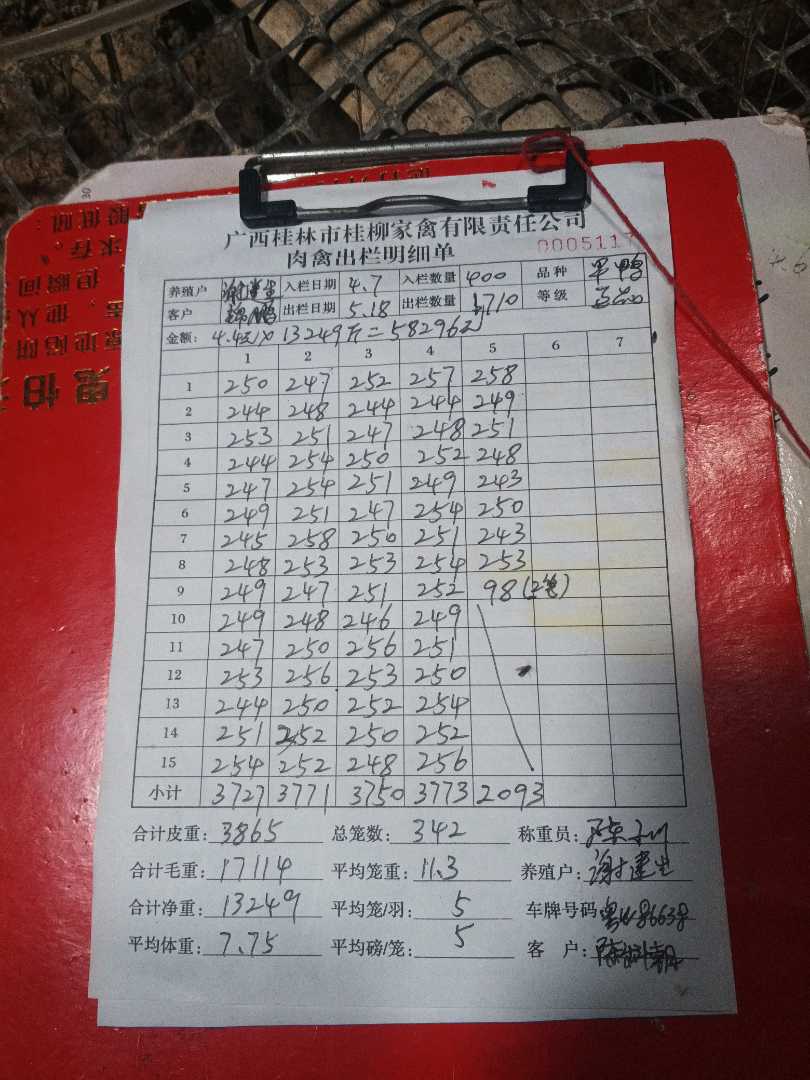 广西桂林市桂柳家禽有限责任公司
肉禽出栏明细单
0005117
养殖户 谢建生 入栏日期 4.7 入栏数量 400 品种
客户 出栏日期 5.18 出栏数量 1710 等级
金额: 4.4元X13249斤=58296元
1 2 3 4 5 6 7
1 250 247 252 257 258
2 244 248 244 244 249
3 253 251 247 248 251
4 244 254 250 252 248
5 247 254 251 249 243
6 249 251 247 254 250
7 245 258 250 251 243
8 248 253 253 254 253
9 249 247 251 252 98(2笼)
10 249 248 246 249
11 247 250 256 251
12 253 256 253 250
13 244 250 252 254
14 251 252 250 252
15 254 252 248 256
小计 3727 3771 3750 3773 2093
合计皮重: 3865 总笼数: 342 称重员:
合计毛重: 17114 平均笼重: 11.3 养殖户: 谢建生
合计净重: 13249 平均笼/羽: 5 车牌号码
平均体重: 7.75 平均磅/笼: 5 客 户: